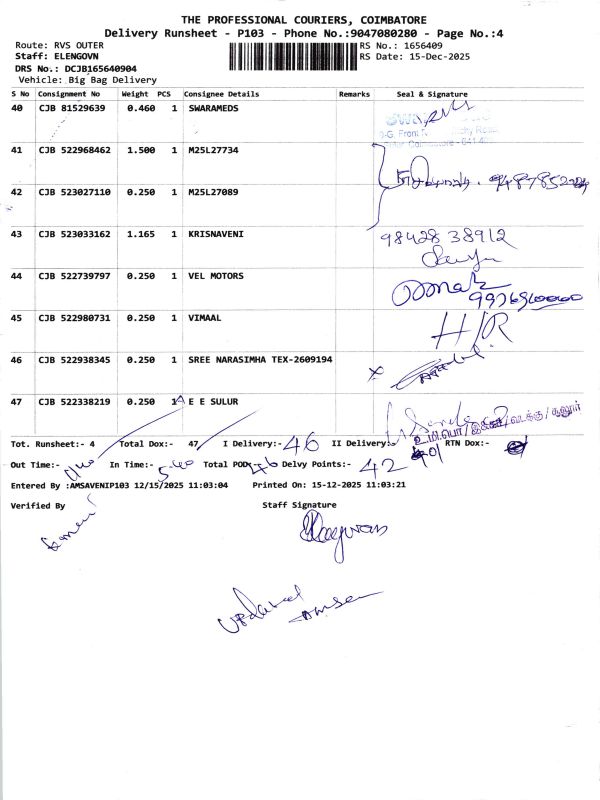 THE PROFESSIONAL COURIERS, COIMBATORE
Delivery Runsheet - P103 - Phone No.:9047080280 - Page No.:4
Route: RVS OUTER RS No.: 1656409
Staff: ELENGOVN RS Date: 15-Dec-2025
DRS No.: DCJB165640904
Vehicle: Big Bag Delivery
S No Consignment No Weight PCS Consignee Details Remarks Seal & Signature
40 CJB 81529639 0.460 1 SWARAMEDS
41 CJB 522968462 1.500 1 M25L27734
42 CJB 523027110 0.250 1 M25L27089
43 CJB 523033162 1.165 1 KRISNAVENI 98428 38912
44 CJB 522739797 0.250 1 VEL MOTORS
45 CJB 522980731 0.250 1 VIMAAL H/R
46 CJB 522938345 0.250 1 SREE NARASIMHA TEX-2609194
47 CJB 522338219 0.250 1 E E SULUR
உ.மி.பொ/இக்கா/வடக்கு/சூலூர்
Tot. Runsheet:- 4 Total Dox:- 47 I Delivery:- 46 II Delivery:- 01 RTN Dox:-
Out Time:- In Time:- 5.40 Total POD:- 46 Delvy Points:- 42
Entered By :AMSAVENIP103 12/15/2025 11:03:04 Printed On: 15-12-2025 11:03:21
Verified By Staff Signature